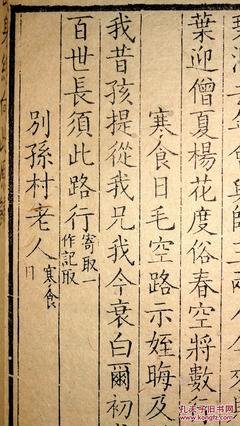 葉迎僧夏楊花度俗春空將數
寒食日毛空路示姪晦及
我昔孩提從我兄我今衰白爾初
百世長須此路行寄取一作記取
別孫村老人寒食日
孔夫子旧书网